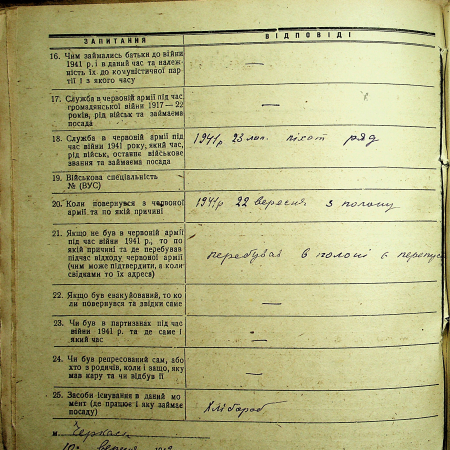 ЗАПИТАННЯ ВІДПОВІДІ
16. Чим займались батьки до війни
1941 р. і в даний час та належ-
ність їх до комуністичної пар-
тії і з якого часу
—
17. Служба в червоній армії під час
громадянської війни 1917 — 22
років, рід військ та займаєма
посада
—
18. Служба в червоній армії під
час війни 1941 року, який час,
рід військ, останнє військове
звання та займаєма посада
1941р 23 піхот ряд
19. Військова спеціальність
№ (ВУС)
20. Коли повернувся з червоної
армії та по якій причині
1941р 22 вересня з полону
21. Якщо не був в червоній армії
під час війни 1941 р., то по
якій причині та де перебував
підчас відходу червоної армії
(чим може підтвердити, а коли
свідками то їх адреса)
перебував в полоні є перепус
22. Якщо був евакуйований, то ко-
ли повернувся та звідки саме
—
23. Чи був в партизанах під час
війни 1941 р. та де саме і
який час
—
24. Чи був репресований сам, або
хто з родичів, коли і защо, яку
мав кару та чи відбув її
—
25. Засоби існування в даний мо-
мент (де працює і яку займає
посаду)
Хлібороб
м. Черкаси